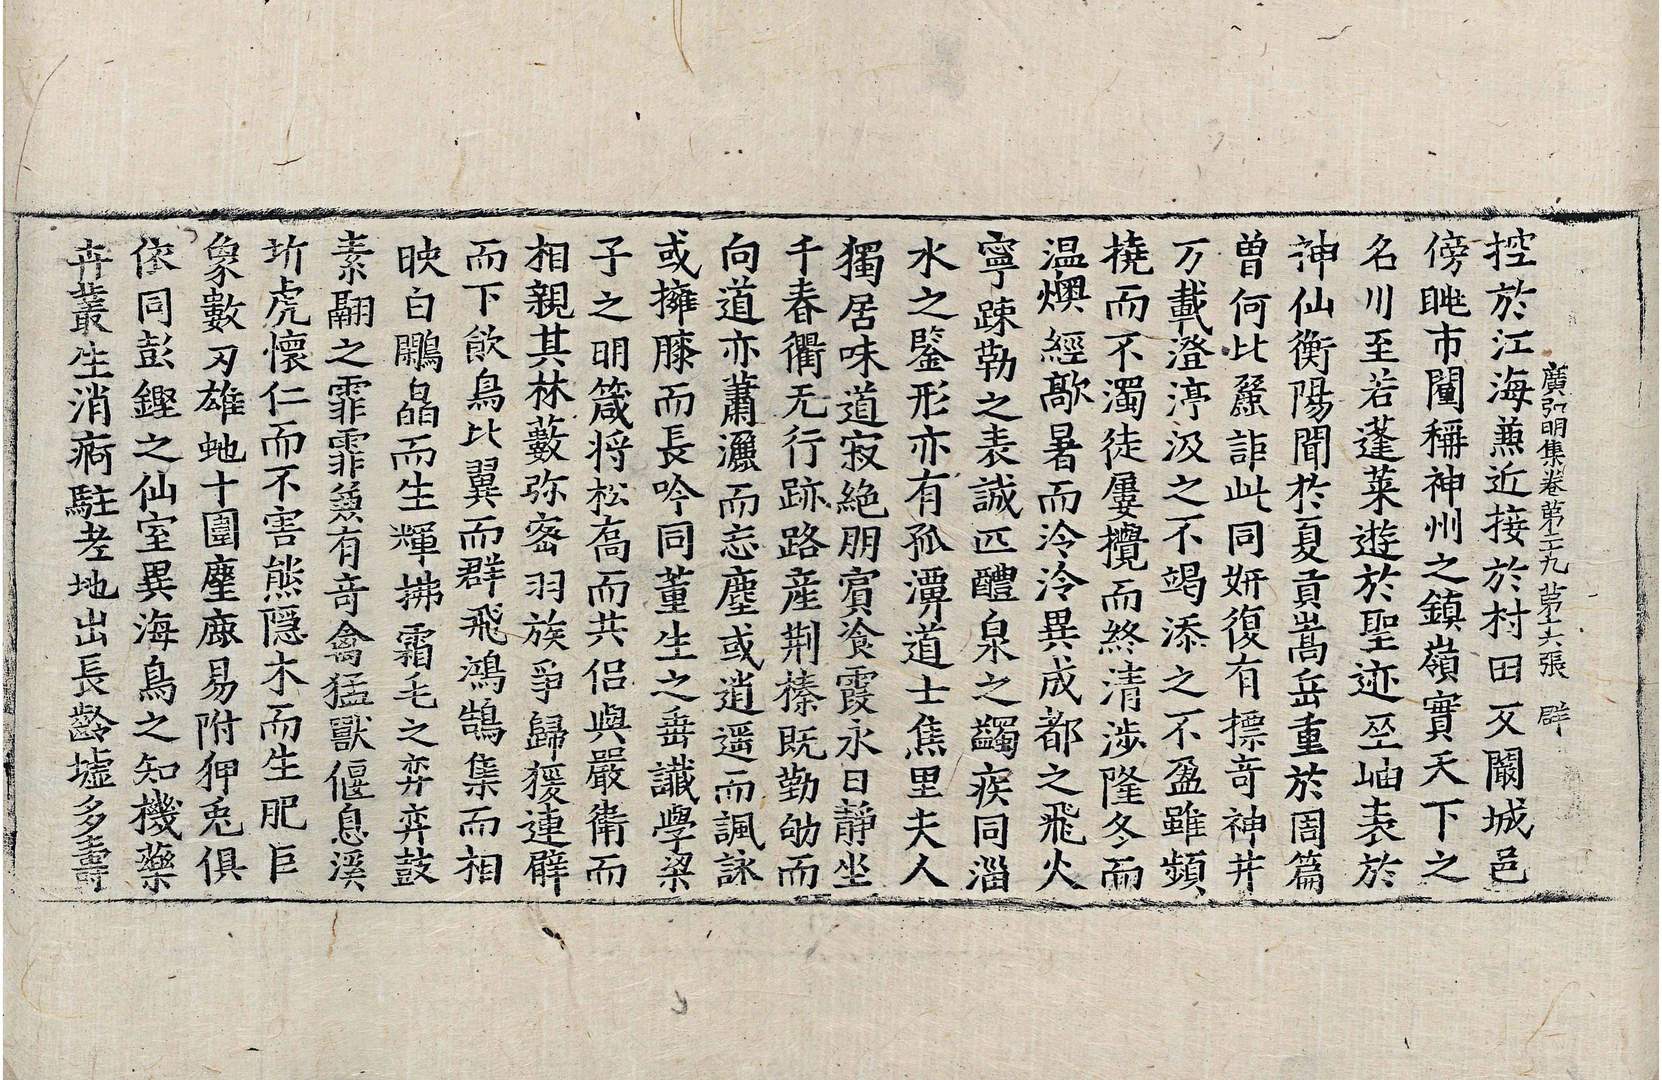 廣弘明集卷第二十九 第十六張 群
控於江海兼近接於村田又闞城邑
傍眺市闉稱神州之鎮嶺實天下之
名川至若蓬萊遊於聖迹巫岫表於
神仙衡陽聞於夏貢嵩岳重於周篇
曾何比麗詎此同姸復有摽竒神井
万載澄渟汲之不竭添之不盈雖頻
撓而不濁徒屢攪而終清涉隆冬而
温燠經歊暑而泠泠異成都之飛火
寧踈勒之表誠匹醴泉之蠲疾同淄
水之鑒形亦有孤遊道士焦里夫人
獨居味道寂絶朋賓飡霞永日靜坐
千春衢无行跡路産荆榛既勤劬而
向道亦蕭灑而忘塵或逍遥而諷詠
或擁膝而長吟同董生之垂讖學梁
子之明箴将松喬而共侣與嚴衛而
相親其林藪弥密羽族爭歸猨連臂
而下飲鳥比翼而群飛鴻鵠集而相
映白鷴皛而生輝拂霜毛之弈弈鼓
素翮之霏霏兼有竒禽猛獸偃息溪
圻虎懷仁而不害熊隠木而生肥巨
象數刃雄虵十圍麈麚易附狎兎俱
依同彭鏗之仙室異海鳥之知機藥
卉叢生消痾駐老地出長齡墟多壽